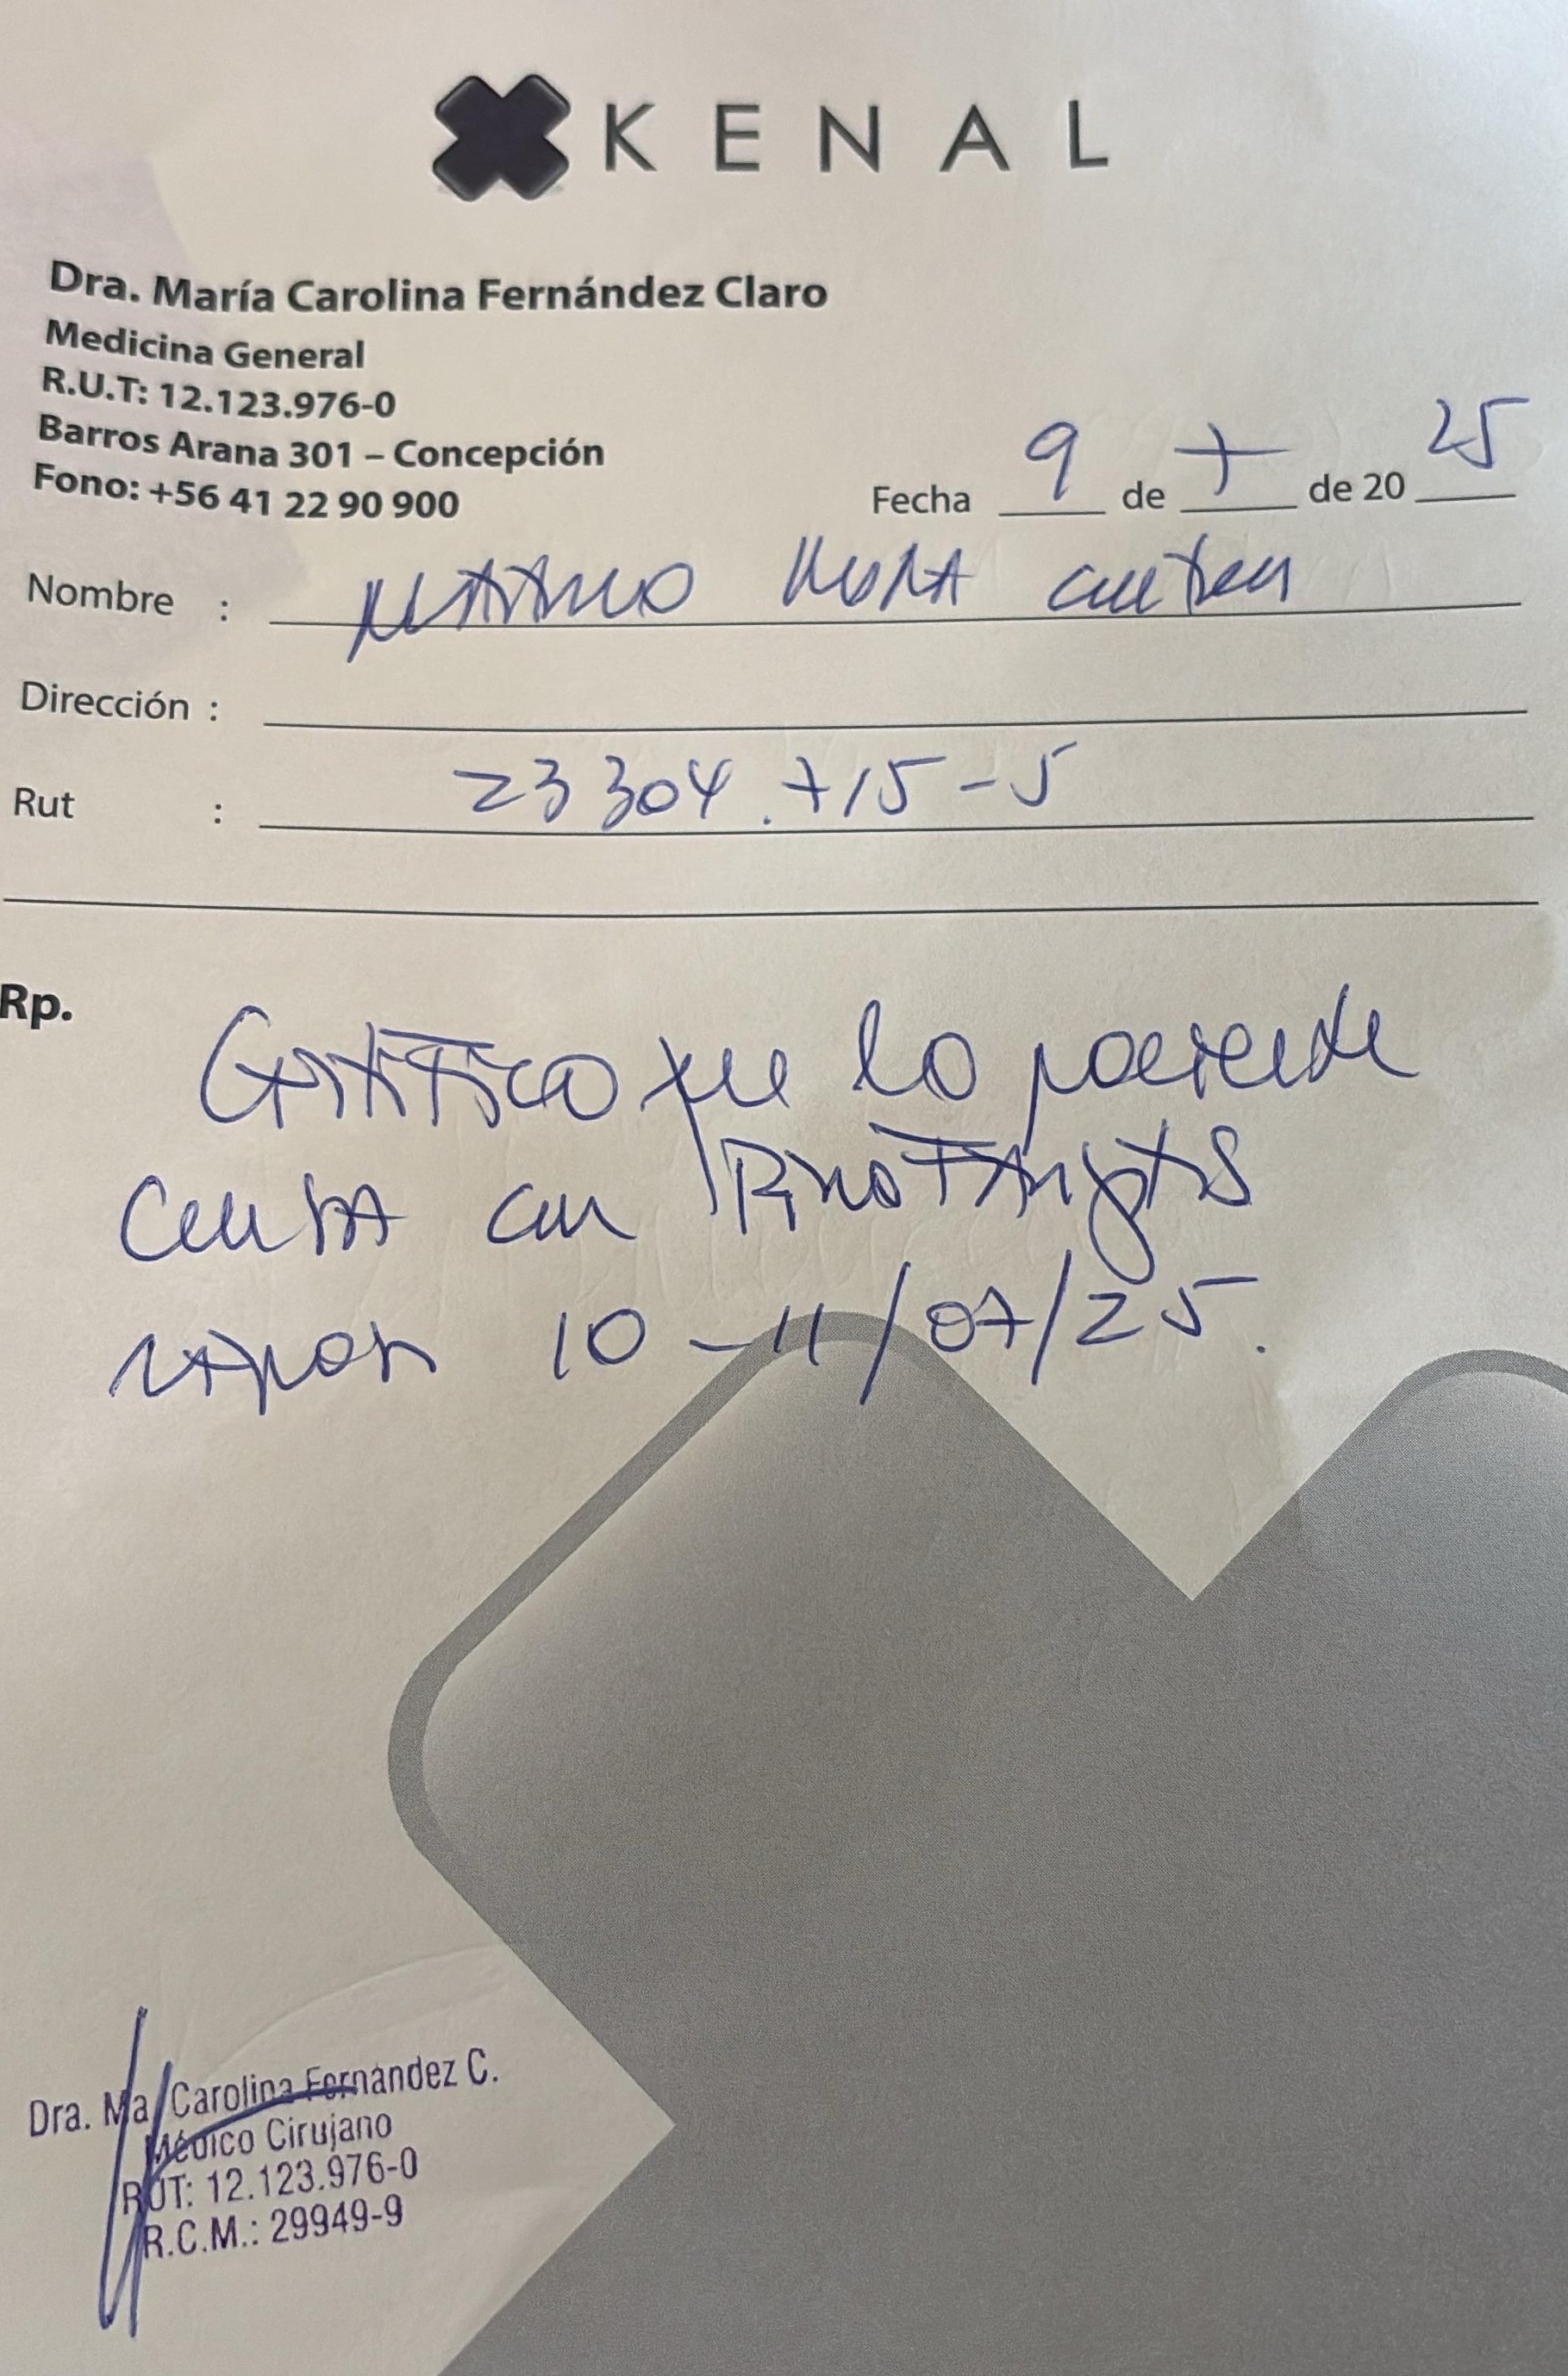 KENAL
Dra. María Carolina Fernández Claro
Medicina General
R.U.T: 12.123.976-0
Barros Arana 301 – Concepción
Fono: +56 41 22 90 900
Fecha 9 de 7 de 2025
Nombre :
Dirección :
Rut : 23 304.715-5
Rp.
Certifico que la paciente
cursa con Rinofaringitis
reposo 10-11/07/25.
Dra. Ma Carolina Fernández C.
Médico Cirujano
RUT: 12.123.976-0
R.C.M.: 29949-9